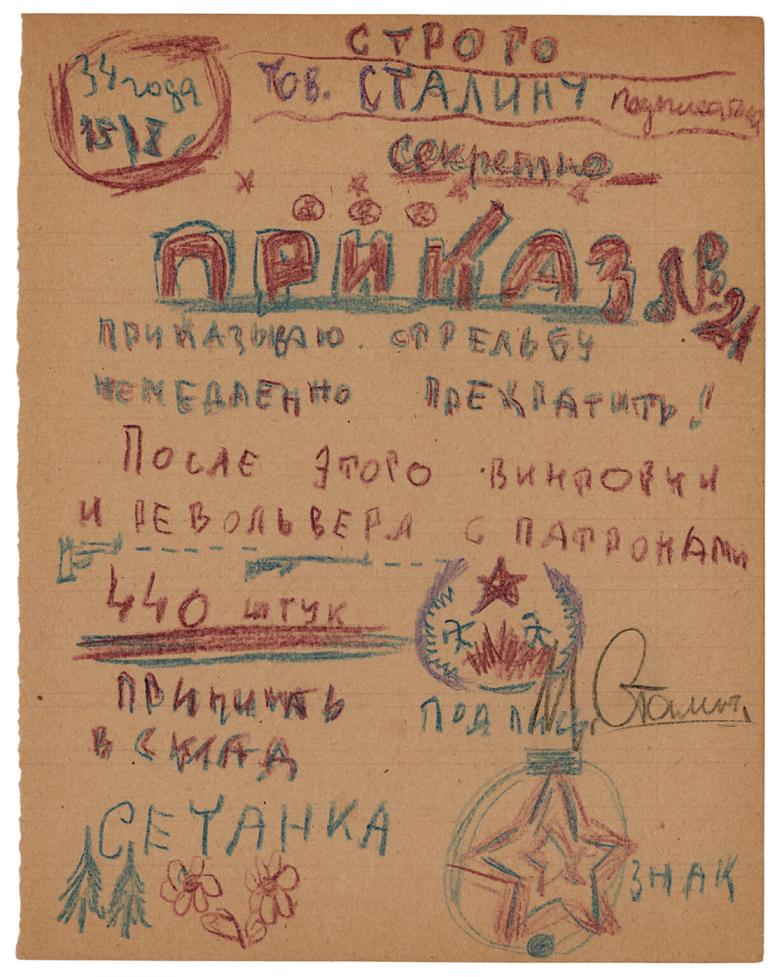 СТРОГО
34 года
15/X
Тов. СТАЛИНУ
секретно
ПРИКАЗ № 21
ПРИКАЗЫВАЮ СТРЕЛЬБУ
НЕМЕДЛЕННО ПРЕКРАТИТЬ!
ПОСЛЕ ЭТОГО ВИНТОВКИ
И РЕВОЛЬВЕРА С ПАТРОНАМИ
440 ШТУК
В СКЛАД
ПОДПИСЬ
И Сталин.
СЕТАНКА
ЗНАК